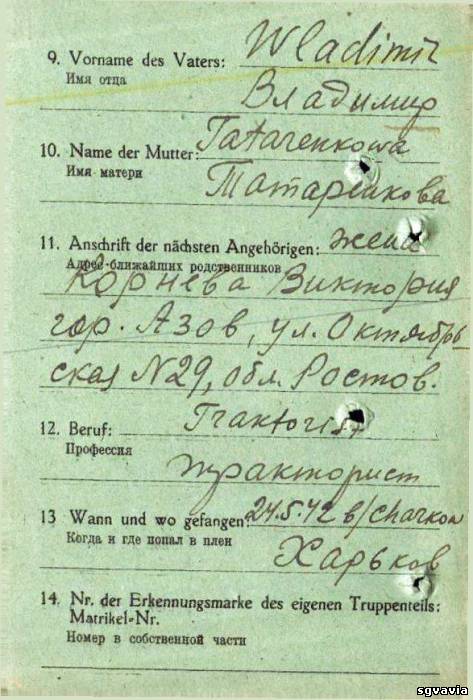 9. Vorname des Vaters: Wladimir
Имя отца
Владимир
10. Name der Mutter: Tatarenkowa
Имя матери
Татаренкова
11. Anschrift der nächsten Angehörigen: жена
Адрес ближайших родственников
Корнева Виктория
гор. Азов, ул. Октябрь-
ская N29, обл. Ростов.
12. Beruf: Traktorist
Профессия
тракторист
13 Wann und wo gefangen: 24.5.42 b/Charkow
Когда и где попал в плен
Харьков
14. Nr. der Erkennungsmarke des eigenen Truppenteils:
Matrikel-Nr.
Номер в собственной части
sgvavia